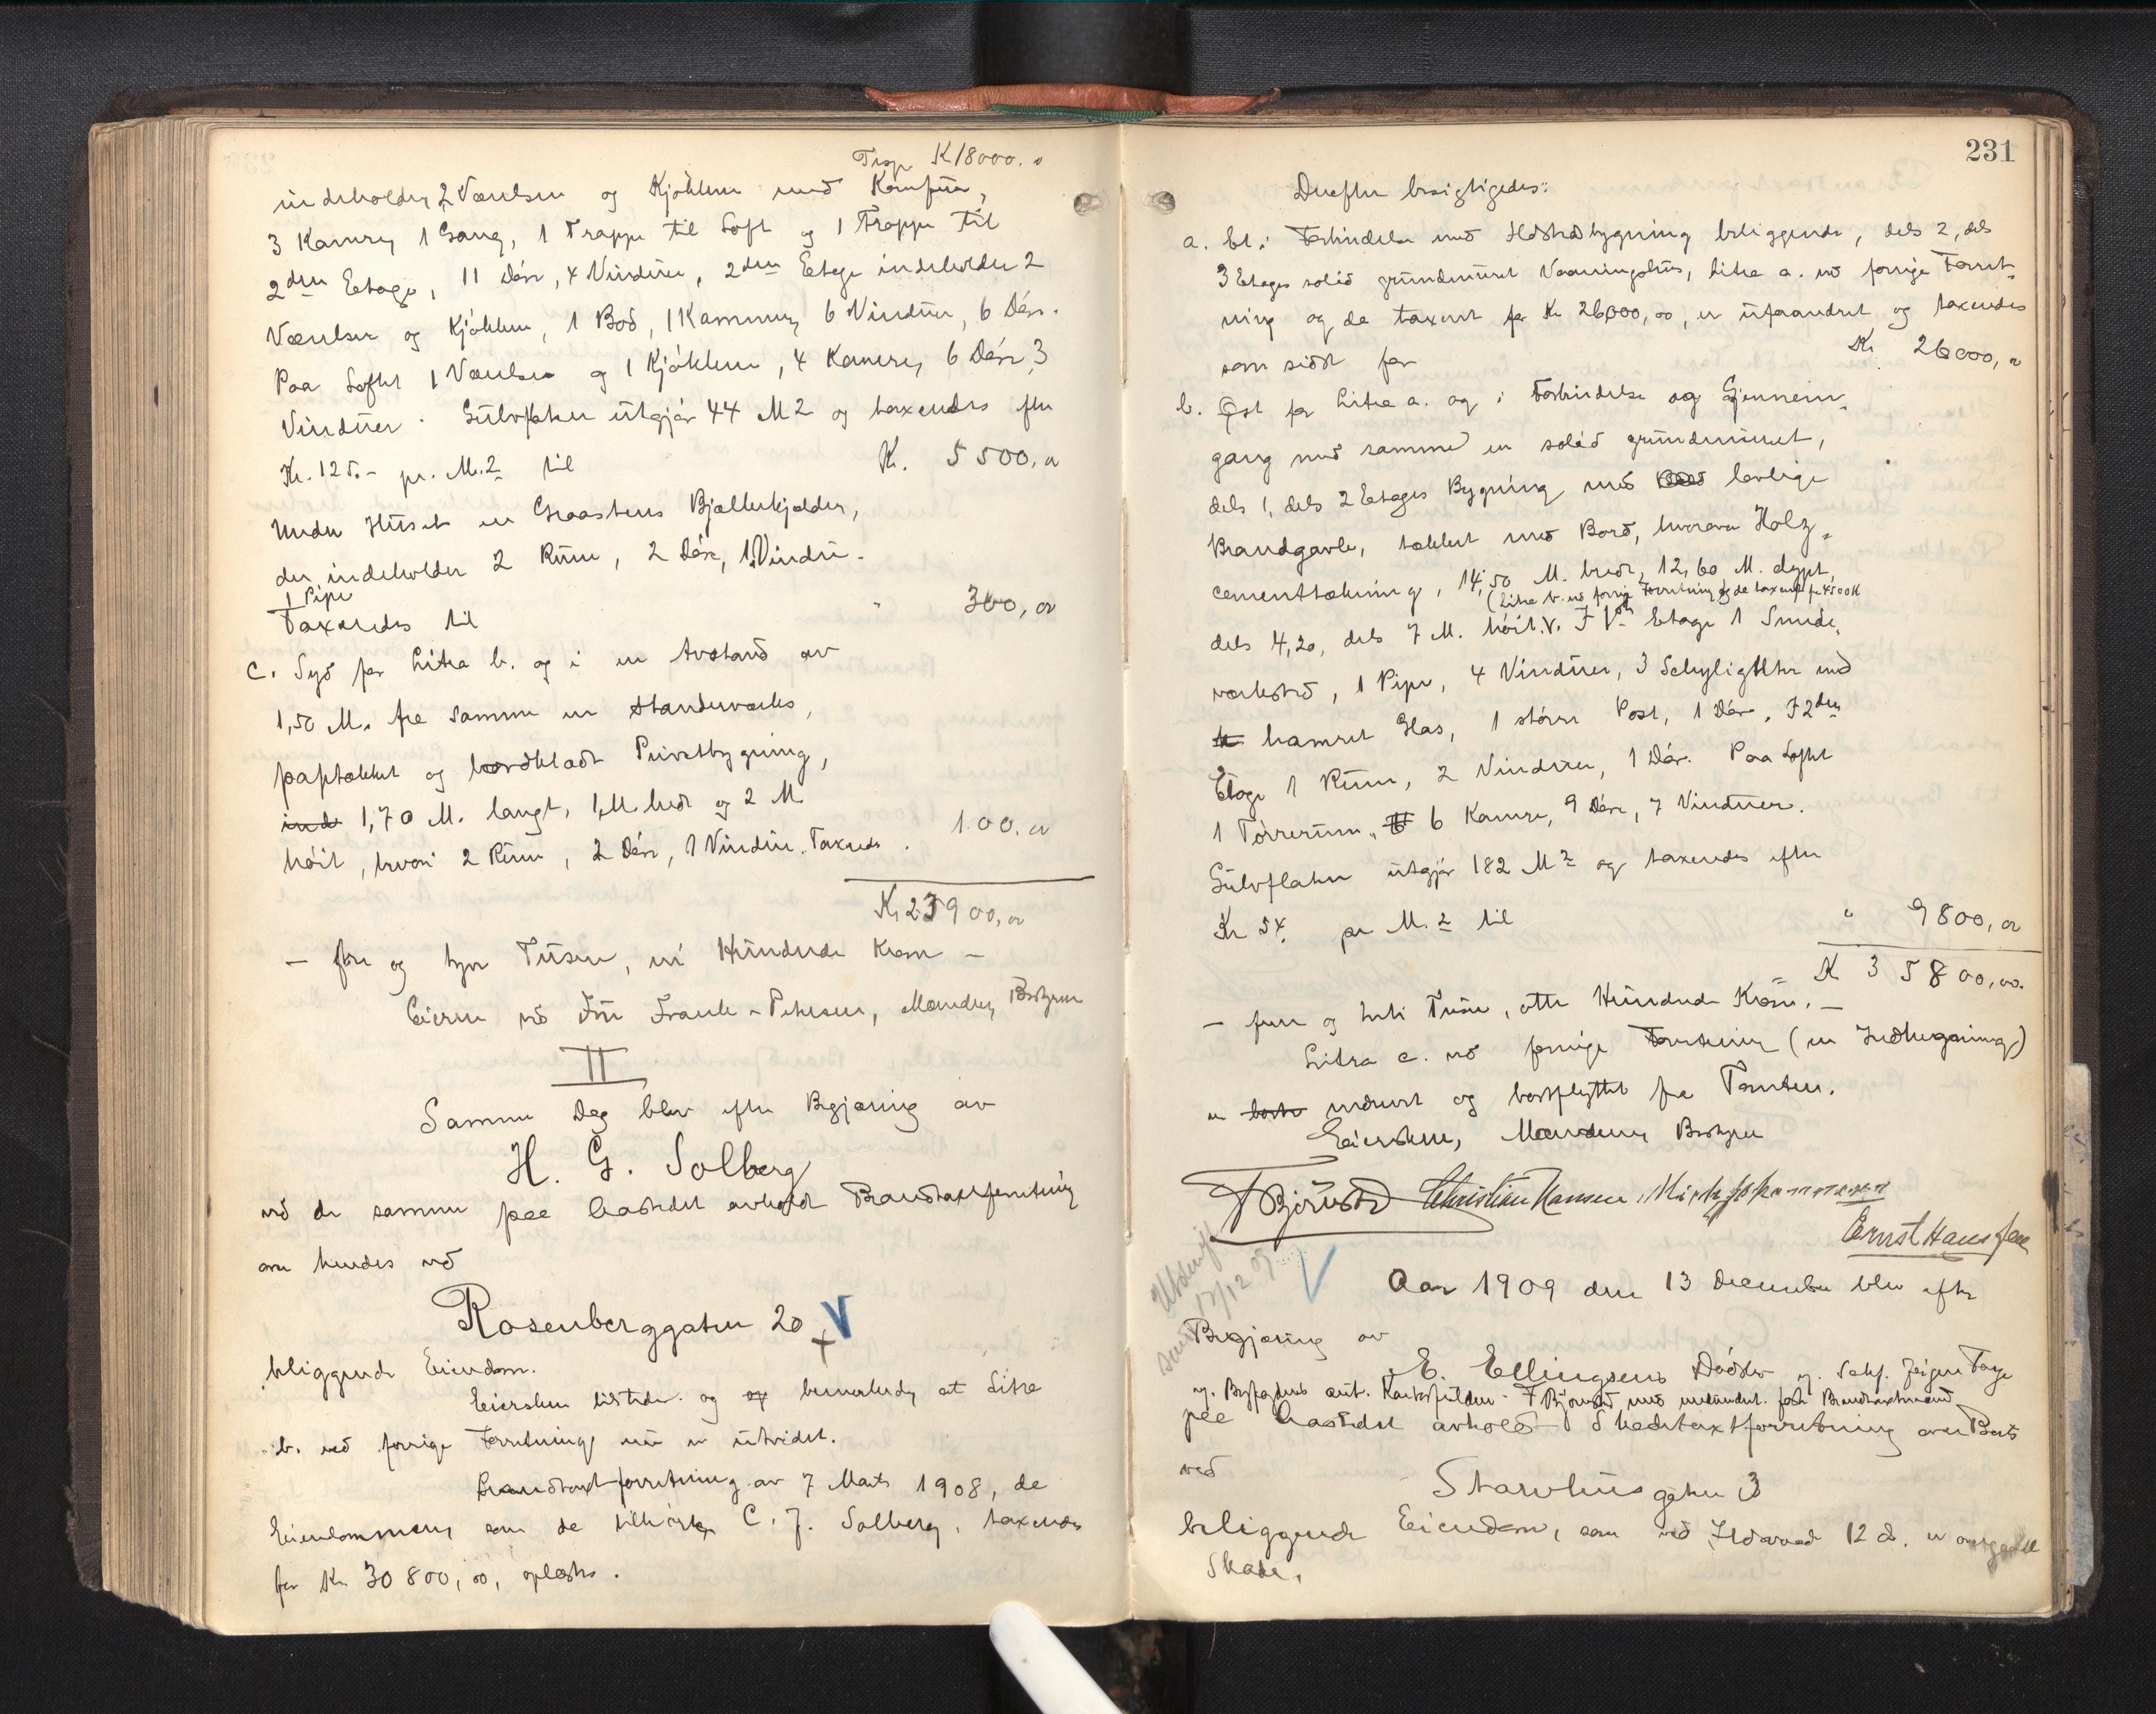 Trsp. K 18000.
indeholder 2 Værelser og Kjøkken med Komfur,
3 Kamre, 1 Gang, 1 Trappe til Loft og 1 Trappe til
2den Etage, 11 Døre, 4 Vinduer, 2den Etage indeholder 2
Værelser og Kjøkken, 1 Bod, 1 Kammer, 6 Vinduer, 6 Døre.
Paa Loftet 1 Værelse og 1 Kjøkken, 4 Kamre, 6 Døre, 3
Vinduer. Gulvflaten utgjør 44 M2 og taxeredes efter
Kr. 125.- pr. M.2 til Kr. 5500,00
Under Huset en Graastens Bjælkekjelder,
der indeholder 2 Rum, 2 Døre, 1 Vindu.
1 Pipe
Taxeredes til " 300,00
c. Syd for Litra b. og i en Avstand av
1,50 M. fra samme en Standerværks,
paptækket og bordklædt Privetbygning,
ind 1,70 M. langt, 1 M. bredt og 2 M.
høit, hvori 2 Rum, 2 Døre, 1 Vindu. Taxeredes 100.00
Kr 23900,00
— tre og tyve Tusen, ni Hundrede Kroner —
Eieren ved Fru Frank-Petersen, Mændene, Bestyreren
II
Samme Dag blev efter Begjæring av
H. G. Solberg
ved de samme paa Aastedet avholdt Brandtaxtforretning
over hendes ved
Rosenberggaten 20 V
beliggende Eiendom.
Eiersken tilstede og og bemerkede, at Litra
b. ved forrige Forretning nu er utvidet.
Brandtaxtforretning av 7 Marts 1908, da
Eiendommen, som da tilhørte C. J. Solberg, taxeredes
for Kr. 30800,00, oplæstes.
231
Derefter besigtigedes:
a. Et i Forbindelse med Hosstaabygning beliggende, dels 2, dels
3 Etages solid grundmuret Vaaningshus, Litra a. ved forrige Forret-
ning og da taxeret for Kr 26000,00, er uforandret og taxeredes
som sidst for Kr. 26000,00
b. Øst for Litra a. og i Forbindelse og Gjennem-
gang med samme en solid grundmuret,
dels 1, dels 2 Etages Bygning med lovlige
Brandgavle, tækket med Bord, hvorover Holz-
cementtækning, 14,50 M. bredt, 12,60 M. dypt,
(Litra b. ved forrige Forretning og da taxeret for 4500 K
dels 4,20, dels 7 M. høit. I 1ste Etage 1 Smede-
verksted, 1 Pipe, 4 Vinduer, 3 Schyligthter med
hamret Glas, 1 større Port, 1 Dør. I 2den
Etage 1 Rum, 2 Vinduer, 1 Dør. Paa Loftet
1 Tørrerum, 6 Kamre, 9 Døre, 7 Vinduer.
Gulvflaten utgjør 182 M2 og taxeredes efter
Kr 54. pr M.2 til " 9800,00
K 35800,00.
— fem og treti Tusen, otte Hundrede Kroner. —
Litra c. ved forrige Forretning (en Indhegning)
er nedrevet og bortflyttet fra Tomten.
Eiersken, Mændene, Bestyreren
F Bjørnstad Christian Hansen, Mich Johannesen
Ernst Hansen
17/12 09
Aar 1909 den 13 December blev efter
Begjæring av
E. Ellingsens Dødsbo
paa Aastedet avholdt Skadetaxtforretning over Boets
ved
Starvhusgaten 3
beliggende Eiendom, som ved Ildsvaade 12 ds. er overgaaet
Skade.